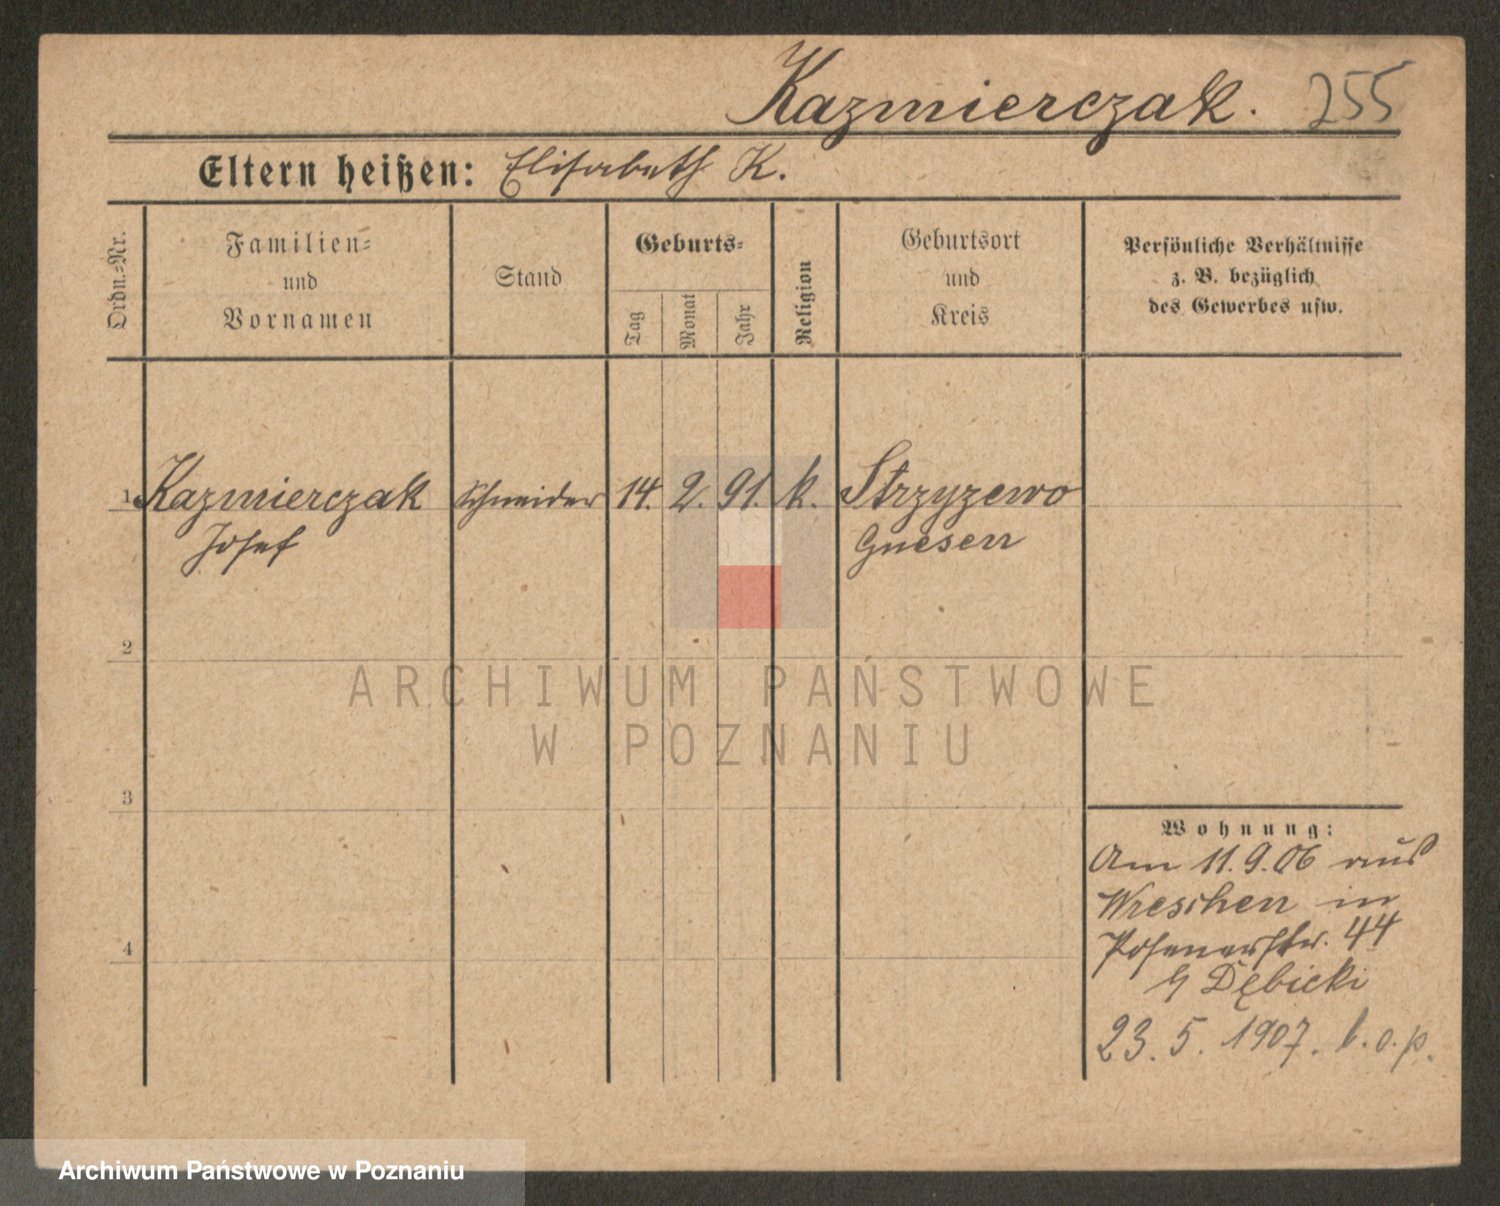 Kazmierczak. 255
Eltern heißen: Elisabeth K.
Ordn.-Nr.
Familien-
und
Vornamen
Stand
Geburts-
Tag
Monat
Jahr
Religion
Geburtsort
und
Kreis
Persönliche Verhältnisse
z. B. bezüglich
des Gewerbes usw.
1 Kazmierczak Schneider 14. 2. 91. k. Strzyzewo
Josef Gnesen
2
ARCHIWUM PAŃSTWOWE
W POZNANIU
3
Wohnung:
Am 11.9.06 aus
Wreschen in
Posenerstr. 44
Dębicki
4
23. 5. 1907. b. o. p.
Archiwum Państwowe w Poznaniu